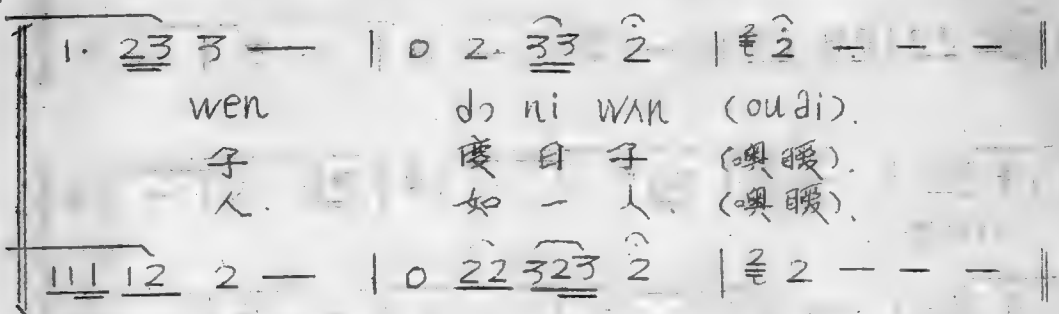 1· 23 3 — | 0 2· 33 2 | 2 2 — — — ‖
wen dɔ ni wʌn (ou ai).
子 度日子 (噢暧).
人. 如一人. (噢暧).
111 12 2 — | 0 22 323 2 | 2 2 — — — ‖